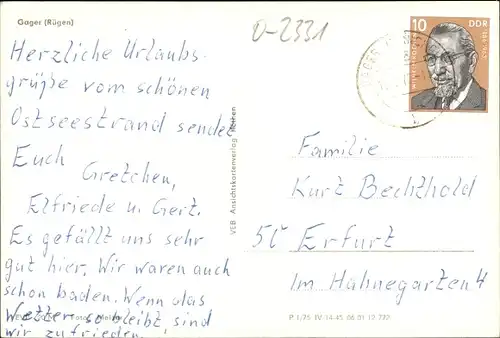 Gager (Rügen)
D-2331
Herzliche Urlaubs-
grüße vom schönen
Ostseestrand sendet
Euch
Gretchen,
Elfriede u. Gert.
Es gefällt uns sehr
gut hier. Wir waren auch
schon baden. Wenn das
Wetter so bleibt, sind
wir zufrieden.
VEB Ansichtskartenverlag
10 DDR
Familie
Kurt Bechthold
50 Erfurt
Im Hahnegarten 4
P 1/75 IV-14-45 06 01 12 727